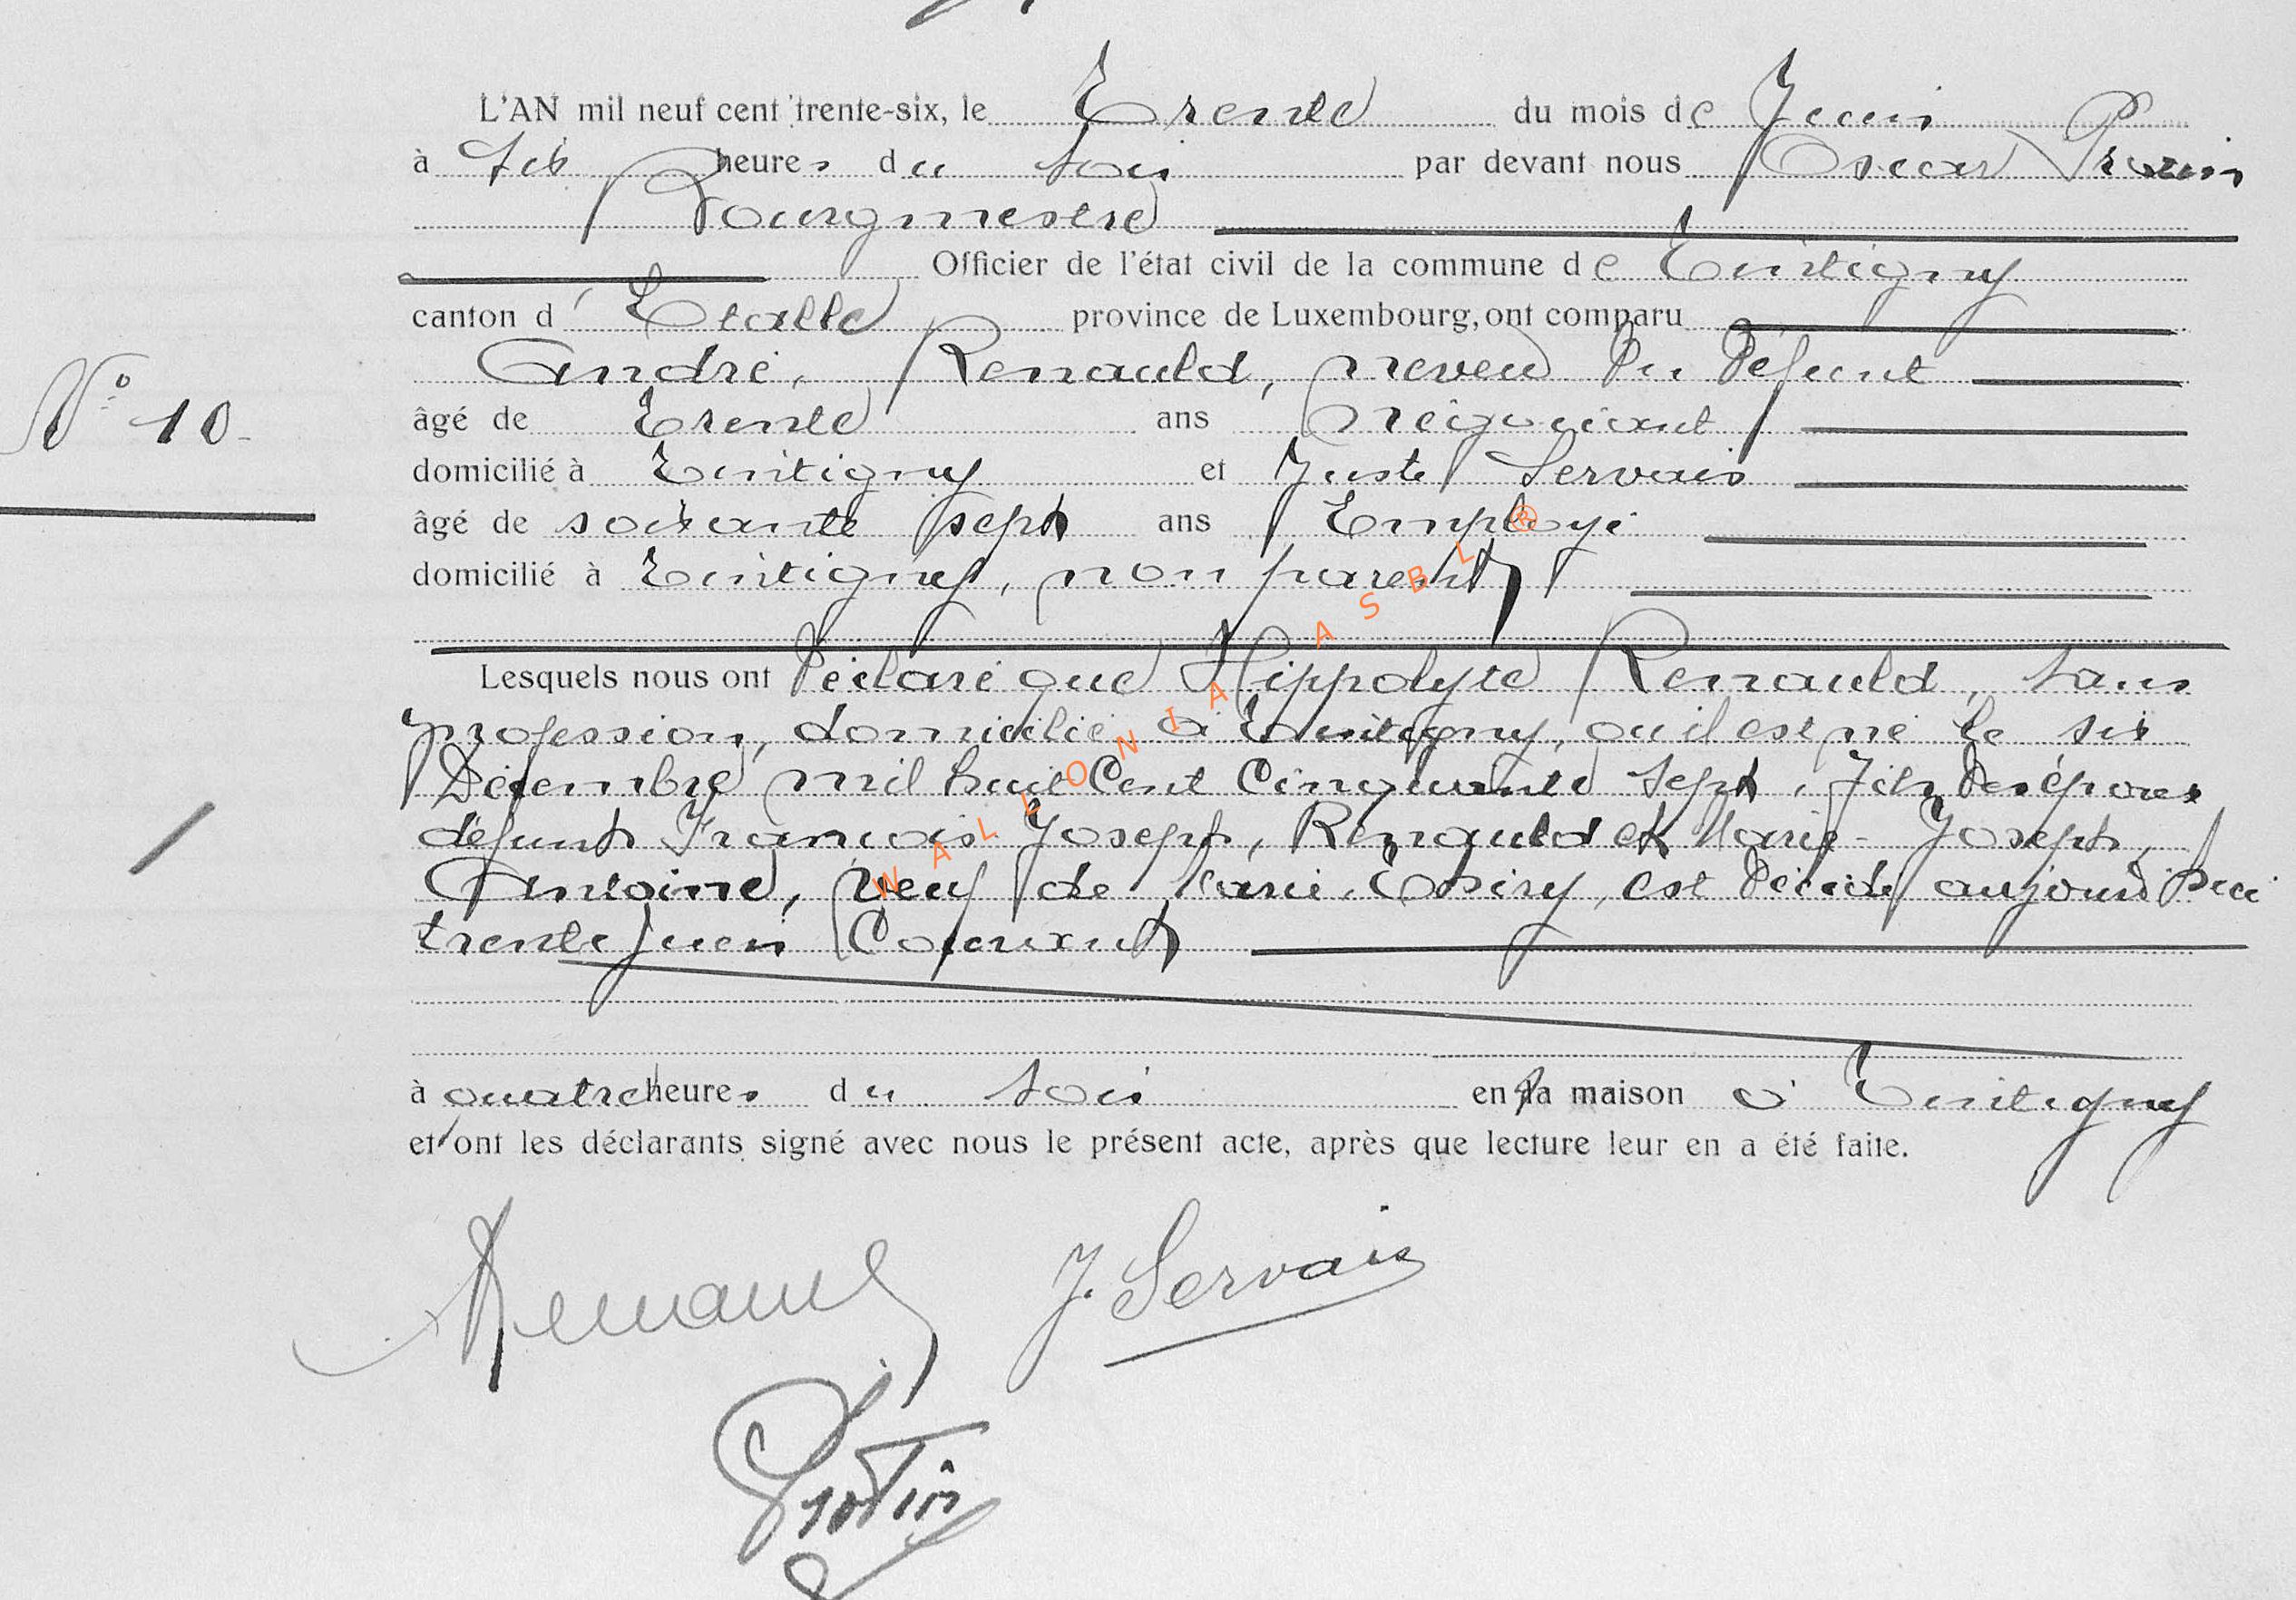 L'AN mil neuf cent trente-six, le Trente du mois de Juin
à six heures du soir par devant nous Oscar Protin
Bourgmestre
Officier de l'état civil de la commune de Tintigny
canton d' Etalle province de Luxembourg, ont comparu
André, Renauld, neveu du défunt
N° 10
âgé de trente ans négociant
domicilié à Tintigny et Juste Servais
âgé de soixante sept ans Employé
domicilié à Tintigny, non parent
Lesquels nous ont déclaré que Hippolyte Renauld, sans
profession, domicilié à Tintigny, où il est né le six
Décembre mil huit Cent Cinquante sept, fils des époux
défunts François Joseph, Renauld et Marie-Joseph,
Antoine, veuf de Marie, est décédé aujourd'hui
trente juin Courant
à quatre heures du soir en sa maison à Tintigny
et ont les déclarants signé avec nous le présent acte, après que lecture leur en a été faite.
Renauld J. Servais
Protin
WALLONIA ASBL ®